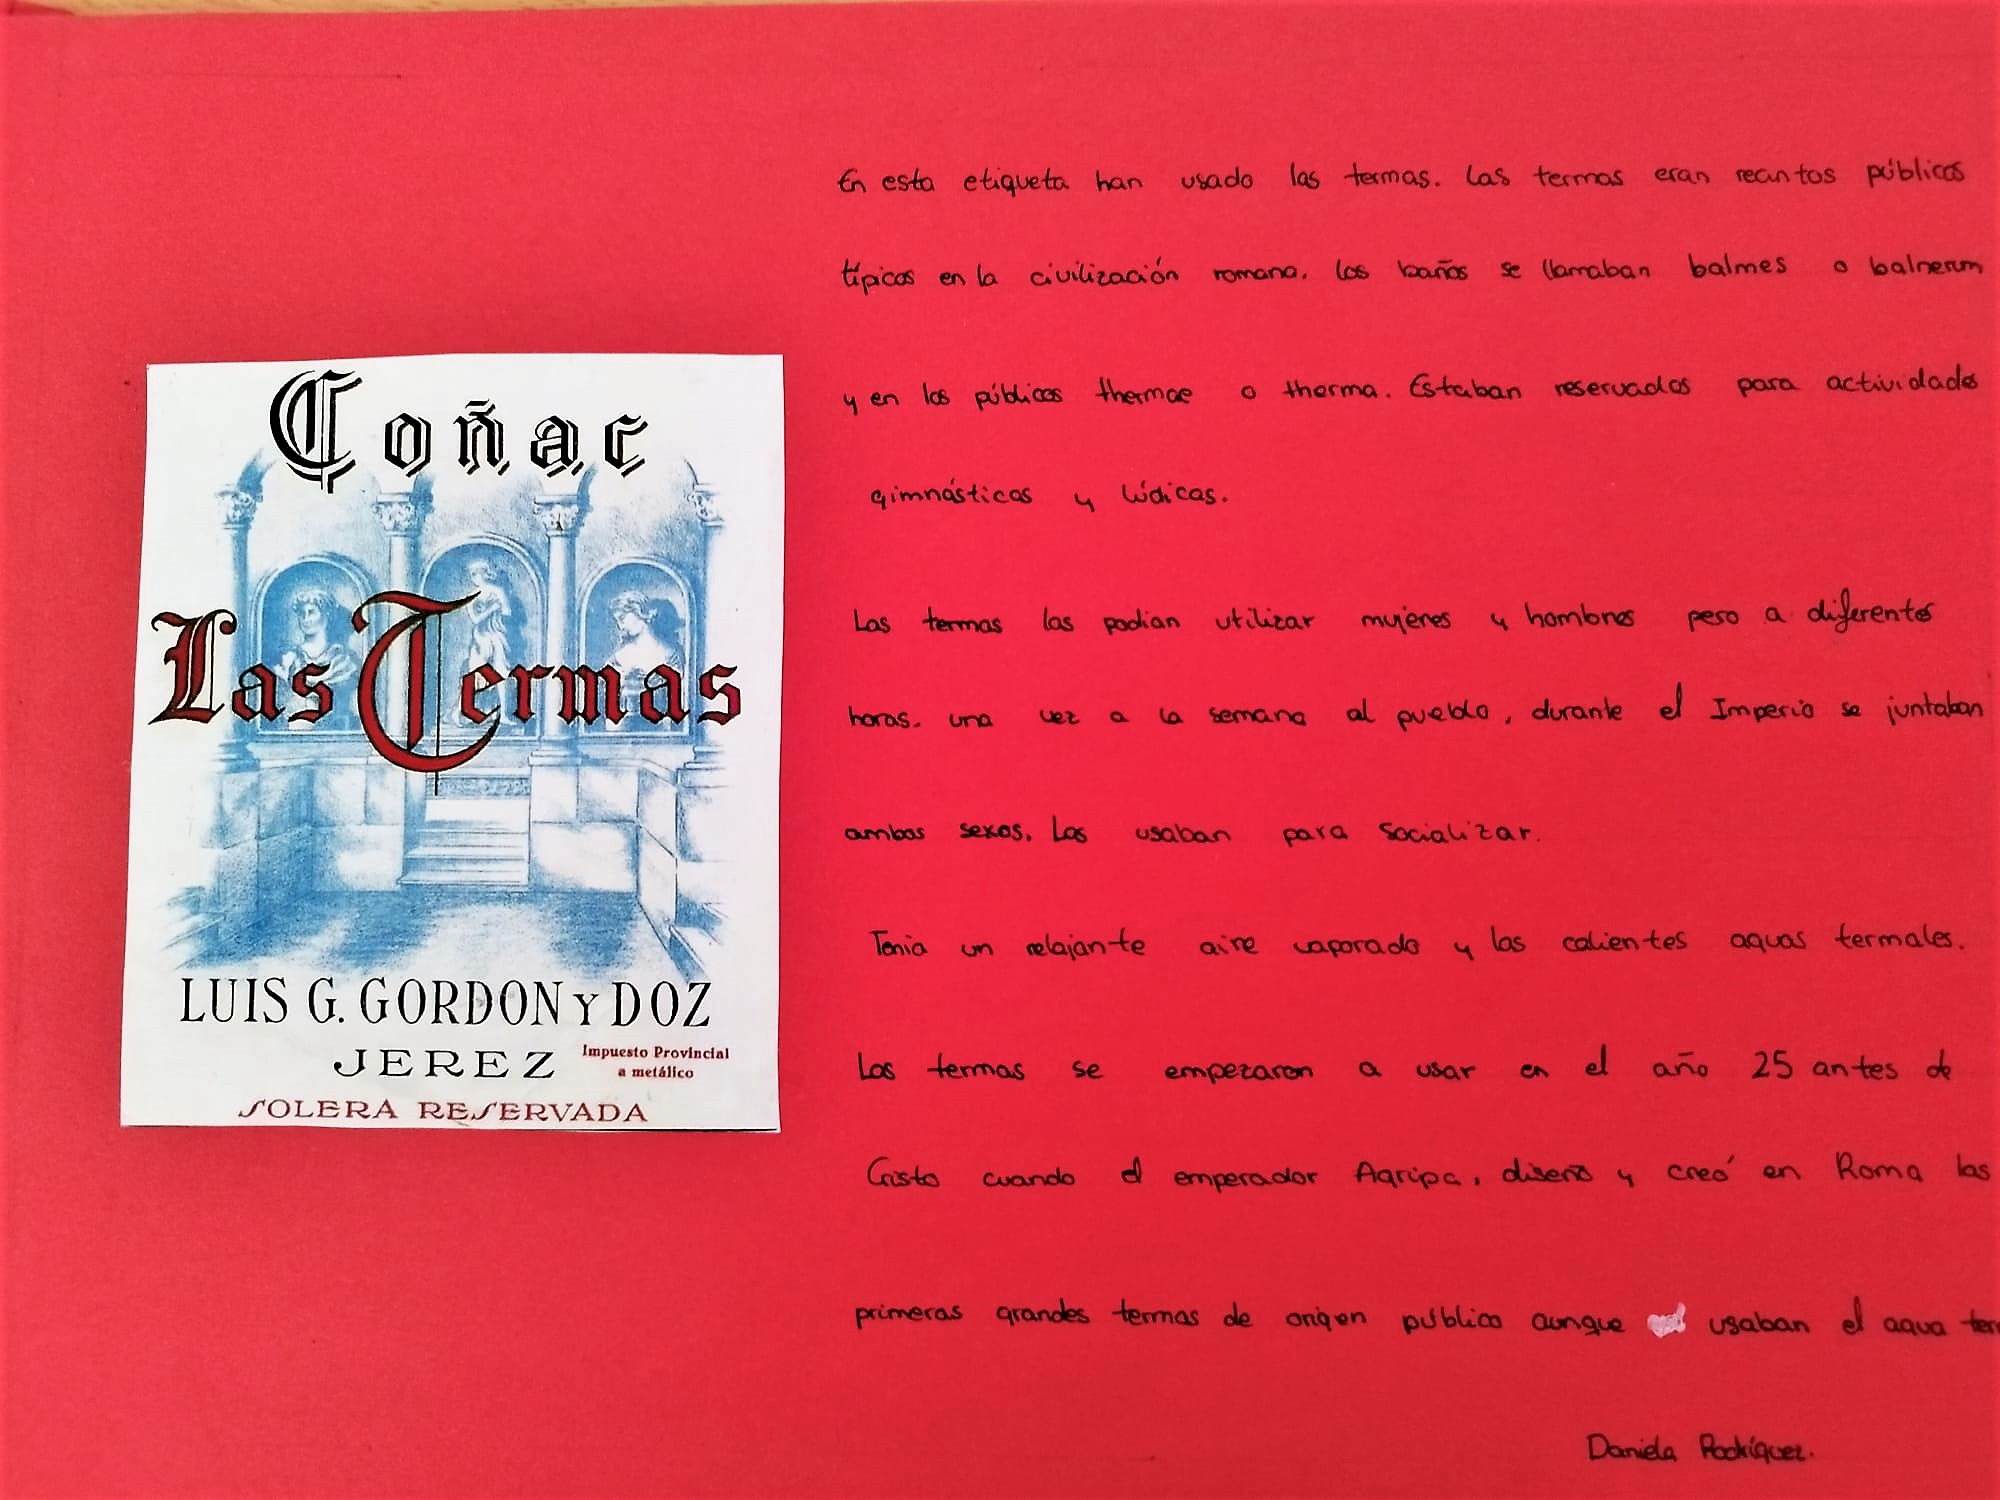 Coñac
Las Termas
LUIS G. GORDON Y DOZ
JEREZ
Impuesto Provincial
a metálico
SOLERA RESERVADA
En esta etiqueta han usado las termas. Las termas eran recintos públicos
típicos en la civilización romana. Los baños se llamaban balmes o balnerum
y en los públicos thermae o therma. Estaban reservados para actividades
gimnásticas y lúdicas.
Las termas las podian utilizar mujeres y hombres pero a diferentes
horas. una vez a la semana al pueblo, durante el Imperio se juntaban
ambos sexos. Las usaban para socializar.
Tenia un relajante aire vaporado y las calientes aguas termales.
Las termas se empezaron a usar en el año 25 antes de
Cristo cuando el emperador Agripa, diseño y creó en Roma las
primeras grandes termas de origen público aunque usaban el agua
Daniela Rodríguez.